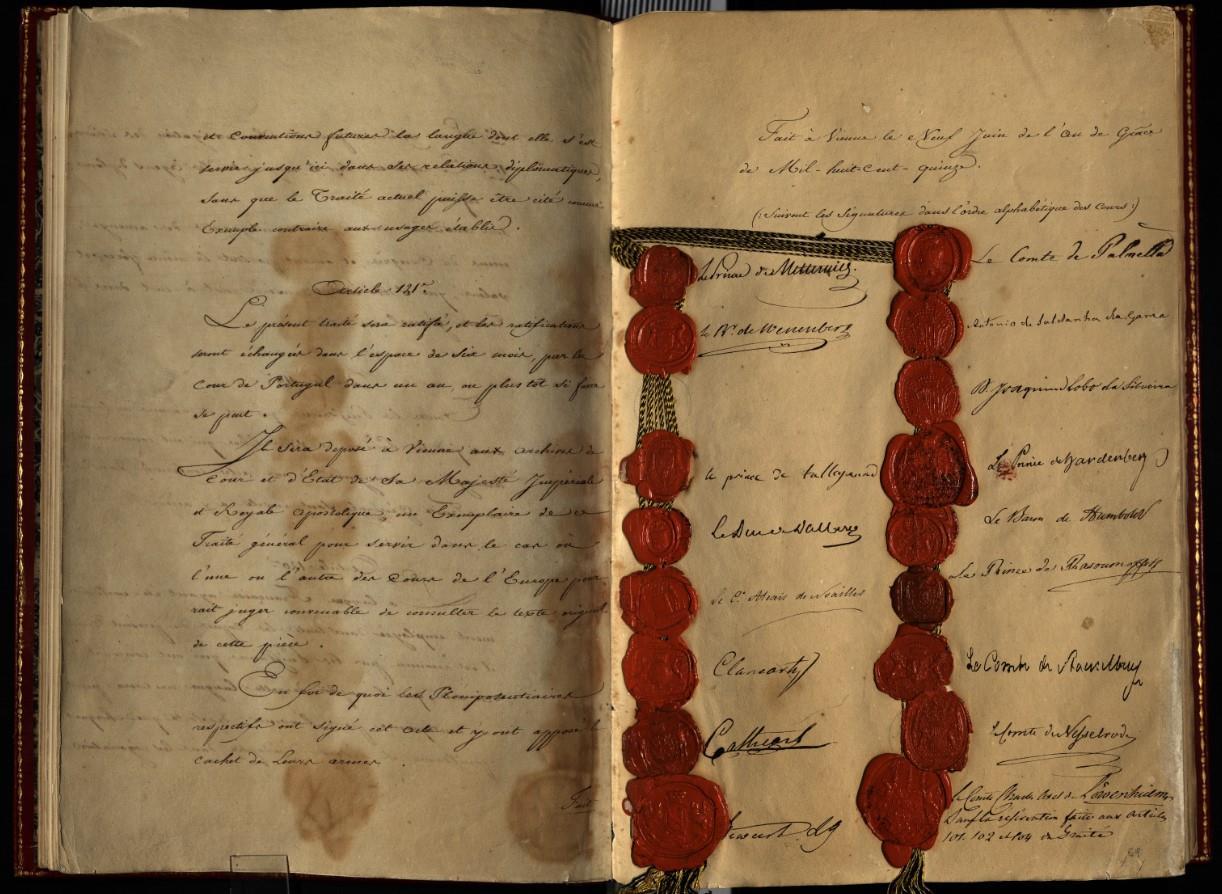 et conventions futures la langue dont elle s'est
servie jusqu'ici dans ses relations diplomatiques,
sans que le Traité actuel puisse être cité comme
Exemple contraire aux usages établis.
Article 121e
Le présent traité sera ratifié, et les ratifications
seront échangées dans l'espace de six mois, par la
cour de Portugal dans un an, ou plustot si faire
se peut.
Il sera déposé à Vienne aux archives de
Cour et d'Etat de Sa Majesté Impériale
et Royale apostolique, un Exemplaire de ce
Traité général pour servir dans le cas où
l'une ou l'autre des Cours de l'Europe pour
rait juger convenable de consulter le texte original
de cette pièce.
En foi de quoi les Plénipotentiaires
respectifs ont signé cet acte et y ont apposé le
cachet de leurs armes.
Fait
Fait à Vienne le Neuf Juin de l'an de Grâce
de Mil-huit-cent-quinze.
(:Suivent les Signatures dans l'ordre alphabétique des Cours:)
Le Prince de Metternich.
Le Bn. de Wessenberg
le prince de talleyrand
Le Duc d'Dalberg
le Cte. Alexis de Noailles
Clancarty
Cathcart
Stewart LG
Le Comte de Palmella
Antonio de Saldanha da Gama
D. Joaquim Lobo da Silveira
Le Prince de Hardenberg
Le Baron de Humboldt
Le Prince de Rasoumoffsky
Le Comte de Stackelberg
Le Comte de Nesselrode
Le Comte Charles Axel de Löwenhielm
Sauf la réservation faite aux articles
101. 102 et 104 du Traité